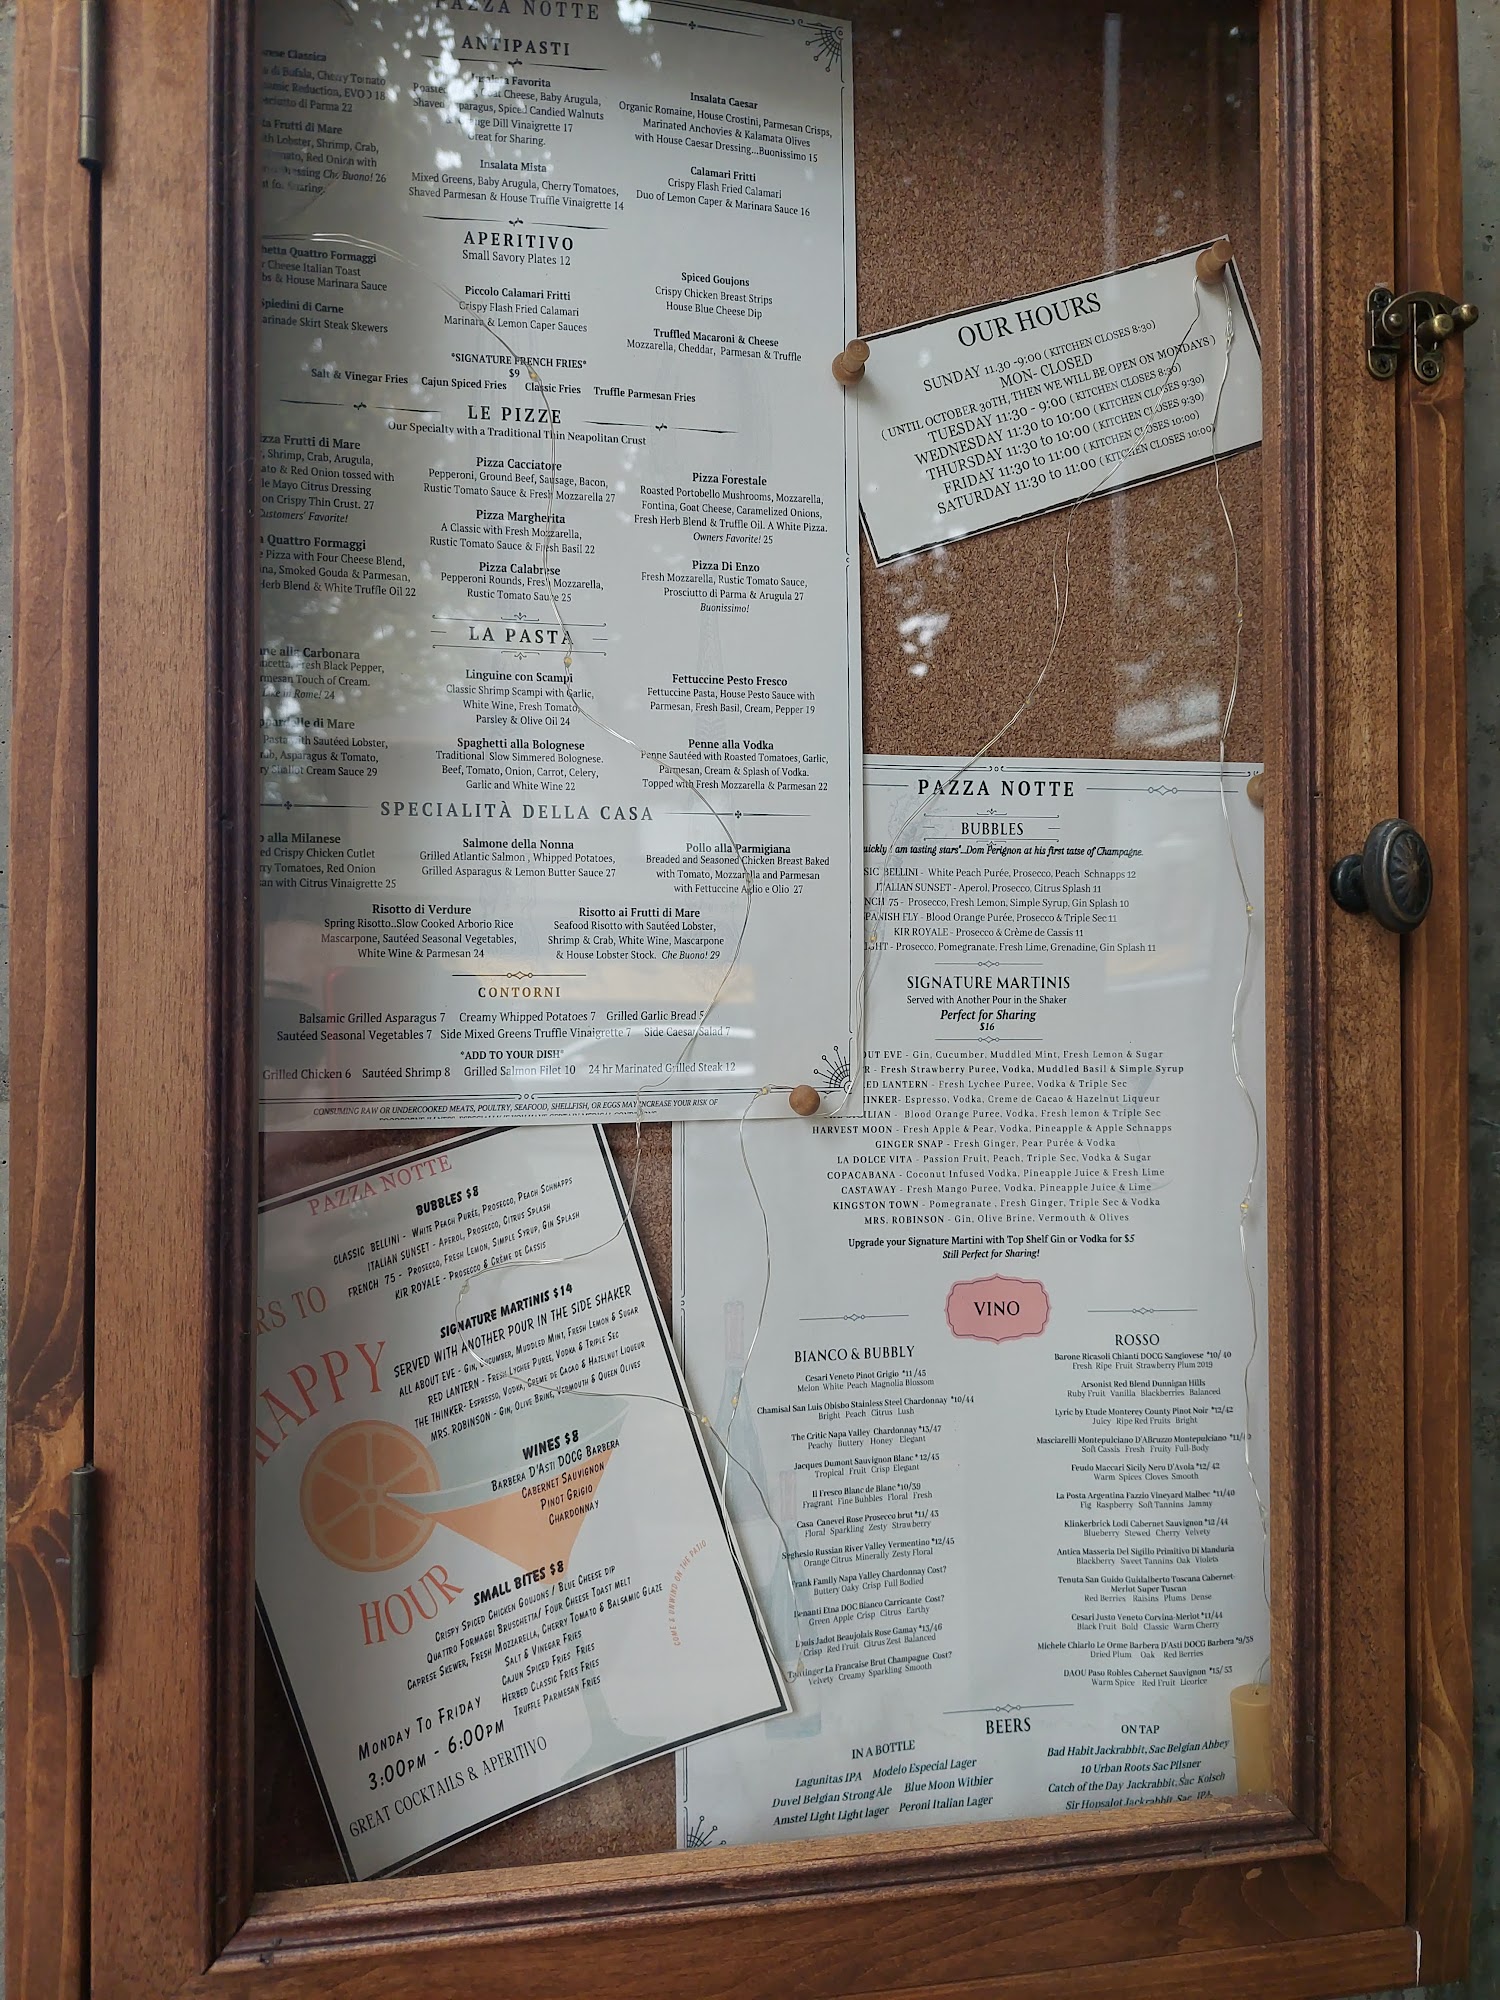 PAZZA NOTTE
ANTIPASTI
Classica
di Bufala, Cherry Tomato
Reduction, EVO 18
di Parma 22
Frutti di Mare
Lobster, Shrimp, Crab,
Red Onion with
Che Buono! 26
Favorita
Cheese, Baby Arugula,
Shaved Spiced Candied Walnuts
Dill Vinaigrette 17
Great for Sharing.
Insalata Mista
Mixed Greens, Baby Arugula, Cherry Tomatoes,
Shaved Parmesan & House Truffle Vinaigrette 14
Insalata Caesar
Organic Romaine, House Crostini, Parmesan Crisps,
Marinated Anchovies & Kalamata Olives
with House Caesar Dressing...Buonissimo 15
Calamari Fritti
Crispy Flash Fried Calamari
Duo of Lemon Caper & Marinara Sauce 16
APERITIVO
Small Savory Plates 12
Quattro Formaggi
Cheese Italian Toast
& House Marinara Sauce
Spiedini di Carne
Skirt Steak Skewers
Piccolo Calamari Fritti
Crispy Flash Fried Calamari
Marinara & Lemon Caper Sauces
Spiced Goujons
Crispy Chicken Breast Strips
House Blue Cheese Dip
Truffled Macaroni & Cheese
Mozzarella, Cheddar, Parmesan & Truffle
*SIGNATURE FRENCH FRIES*
$9
Salt & Vinegar Fries Cajun Spiced Fries Classic Fries Truffle Parmesan Fries
LE PIZZE
Our Specialty with a Traditional Thin Neapolitan Crust
Frutti di Mare
Shrimp, Crab, Arugula,
& Red Onion tossed with
Mayo Citrus Dressing
on Crispy Thin Crust. 27
Customers' Favorite!
Quattro Formaggi
Pizza with Four Cheese Blend,
Smoked Gouda & Parmesan,
Herb Blend & White Truffle Oil 22
Pizza Cacciatore
Pepperoni, Ground Beef, Sausage, Bacon,
Rustic Tomato Sauce & Fresh Mozzarella 27
Pizza Margherita
A Classic with Fresh Mozzarella,
Rustic Tomato Sauce & Fresh Basil 22
Pizza Calabrese
Pepperoni Rounds, Fresh Mozzarella,
Rustic Tomato Sauce 25
Pizza Forestale
Roasted Portobello Mushrooms, Mozzarella,
Fontina, Goat Cheese, Caramelized Onions,
Fresh Herb Blend & Truffle Oil. A White Pizza.
Owners Favorite! 25
Pizza Di Enzo
Fresh Mozzarella, Rustic Tomato Sauce,
Prosciutto di Parma & Arugula 27
Buonissimo!
LA PASTA
alla Carbonara
Fresh Black Pepper,
Touch of Cream.
Rome! 24
di Mare
Pasta with Sautéed Lobster,
Asparagus & Tomato,
Shallot Cream Sauce 29
Linguine con Scampi
Classic Shrimp Scampi with Garlic,
White Wine, Fresh Tomato,
Parsley & Olive Oil 24
Spaghetti alla Bolognese
Traditional Slow Simmered Bolognese.
Beef, Tomato, Onion, Carrot, Celery,
Garlic and White Wine 22
Fettuccine Pesto Fresco
Fettuccine Pasta, House Pesto Sauce with
Parmesan, Fresh Basil, Cream, Pepper 19
Penne alla Vodka
Penne Sautéed with Roasted Tomatoes, Garlic,
Parmesan, Cream & Splash of Vodka.
Topped with Fresh Mozzarella & Parmesan 22
SPECIALITÀ DELLA CASA
alla Milanese
Crispy Chicken Cutlet
Tomatoes, Red Onion
with Citrus Vinaigrette 25
Salmone della Nonna
Grilled Atlantic Salmon , Whipped Potatoes,
Grilled Asparagus & Lemon Butter Sauce 27
Pollo alla Parmigiana
Breaded and Seasoned Chicken Breast Baked
with Tomato, Mozzarella and Parmesan
with Fettuccine Aglio e Olio 27
Risotto di Verdure
Spring Risotto..Slow Cooked Arborio Rice
Mascarpone, Sautéed Seasonal Vegetables,
White Wine & Parmesan 24
Risotto ai Frutti di Mare
Seafood Risotto with Sautéed Lobster,
Shrimp & Crab, White Wine, Mascarpone
& House Lobster Stock. Che Buono! 29
CONTORNI
Balsamic Grilled Asparagus 7 Creamy Whipped Potatoes 7 Grilled Garlic Bread 5
Sautéed Seasonal Vegetables 7 Side Mixed Greens Truffle Vinaigrette 7 Side Caesar Salad 7
*ADD TO YOUR DISH*
Grilled Chicken 6 Sautéed Shrimp 8 Grilled Salmon Filet 10 24 hr Marinated Grilled Steak 12
CONSUMING RAW OR UNDERCOOKED MEATS, POULTRY, SEAFOOD, SHELLFISH, OR EGGS MAY INCREASE YOUR RISK OF
OUR HOURS
SUNDAY 11.30 -9:00 ( KITCHEN CLOSES 8:30)
MON- CLOSED
( UNTIL OCTOBER 30TH, THEN WE WILL BE OPEN ON MONDAYS )
TUESDAY 11:30 - 9:00 ( KITCHEN CLOSES 8:30)
WEDNESDAY 11:30 to 10:00 ( KITCHEN CLOSES 9:30)
THURSDAY 11:30 to 10:00 ( KITCHEN CLOSES 9:30)
FRIDAY 11:30 to 11:00 ( KITCHEN CLOSES 10:00)
SATURDAY 11:30 to 11:00 ( KITCHEN CLOSES 10:00)
PAZZA NOTTE
BUBBLES
I am tasting stars"...Dom Perignon at his first tatse of Champagne.
BELLINI - White Peach Purée, Prosecco, Peach Schnapps 12
ITALIAN SUNSET - Aperol, Prosecco, Citrus Splash 11
75 - Prosecco, Fresh Lemon, Simple Syrup, Gin Splash 10
SPANISH FLY - Blood Orange Purée, Prosecco & Triple Sec 11
KIR ROYALE - Prosecco & Crème de Cassis 11
- Prosecco, Pomegranate, Fresh Lime, Grenadine, Gin Splash 11
SIGNATURE MARTINIS
Served with Another Pour in the Shaker
Perfect for Sharing
$16
EVE - Gin, Cucumber, Muddled Mint, Fresh Lemon & Sugar
- Fresh Strawberry Puree, Vodka, Muddled Basil & Simple Syrup
LANTERN - Fresh Lychee Puree, Vodka & Triple Sec
- Espresso, Vodka, Creme de Cacao & Hazelnut Liqueur
- Blood Orange Puree, Vodka, Fresh lemon & Triple Sec
HARVEST MOON - Fresh Apple & Pear, Vodka, Pineapple & Apple Schnapps
GINGER SNAP - Fresh Ginger, Pear Purée & Vodka
LA DOLCE VITA - Passion Fruit, Peach, Triple Sec, Vodka & Sugar
COPACABANA - Coconut Infused Vodka, Pineapple Juice & Fresh Lime
CASTAWAY - Fresh Mango Puree, Vodka, Pineapple Juice & Lime
KINGSTON TOWN - Pomegranate , Fresh Ginger, Triple Sec & Vodka
MRS. ROBINSON - Gin, Olive Brine, Vermouth & Olives
Upgrade your Signature Martini with Top Shelf Gin or Vodka for $5
Still Perfect for Sharing!
VINO
BIANCO & BUBBLY
Cesari Veneto Pinot Grigio *11 /45
Melon White Peach Magnolia Blossom
Chamisal San Luis Obisbo Stainless Steel Chardonnay *10/44
Bright Peach Citrus Lush
The Critic Napa Valley Chardonnay *13/47
Peachy Buttery Honey Elegant
Jacques Dumont Sauvignon Blanc * 12/45
Tropical Fruit Crisp Elegant
Il Fresco Blanc de Blanc *10/39
Fragrant Fine Bubbles Floral Fresh
Casa Canevel Rose Prosecco brut *11/ 43
Floral Sparkling Zesty Strawberry
Seghesio Russian River Valley Vermentino *12/45
Orange Citrus Minerally Zesty Floral
Frank Family Napa Valley Chardonnay Cost?
Buttery Oaky Crisp Full Bodied
Benanti Etna DOC Bianco Carricante Cost?
Green Apple Crisp Citrus Earthy
Louis Jadot Beaujolais Rose Gamay *13/46
Crisp Red Fruit Citrus Zest Balanced
Taittinger La Francaise Brut Champagne Cost?
Velvety Creamy Sparkling Smooth
ROSSO
Barone Ricasoli Chianti DOCG Sangiovese *10/ 40
Fresh Ripe Fruit Strawberry Plum 2019
Arsonist Red Blend Dunnigan Hills
Ruby Fruit Vanilla Blackberries Balanced
Lyric by Etude Monterey County Pinot Noir *12/42
Juicy Ripe Red Fruits Bright
Masciarelli Montepulciano D'ABruzzo Montepulciano
Soft Cassis Fresh Fruity Full-Body
Feudo Maccari Sicily Nero D'Avola *12/ 42
Warm Spices Cloves Smooth
La Posta Argentina Fazzio Vineyard Malbec *11/40
Fig Raspberry Soft Tannins Jammy
Klinkerbrick Lodi Cabernet Sauvignon *12 /44
Blueberry Stewed Cherry Velvety
Antica Masseria Del Sigillo Primitivo Di Manduria
Blackberry Sweet Tannins Oak Violets
Tenuta San Guido Guidalberto Toscana Cabernet-
Merlot Super Tuscan
Red Berries Raisins Plums Dense
Cesari Justo Veneto Corvina-Merlot *11/44
Black Fruit Bold Classic Warm Cherry
Michele Chiarlo Le Orme Barbera D'Asti DOCG Barbera *9/38
Dried Plum Oak Red Berries
DAOU Paso Robles Cabernet Sauvignon *15/ 55
Warm Spice Red Fruit Licorice
BEERS
IN A BOTTLE
Lagunitas IPA Modelo Especial Lager
Duvel Belgian Strong Ale Blue Moon Witbier
Amstel Light Light lager Peroni Italian Lager
ON TAP
Bad Habit Jackrabbit, Sac Belgian Abbey
10 Urban Roots Sac Pilsner
Catch of the Day Jackrabbit, Sac Kolsch
Sir Hopsalot Jackrabbit Sac IPA
PAZZA NOTTE
BUBBLES $8
CLASSIC BELLINI - WHITE PEACH PURÉE, PROSECCO, PEACH SCHNAPPS
ITALIAN SUNSET - APEROL, PROSECCO, CITRUS SPLASH
FRENCH 75 - PROSECCO, FRESH LEMON, SIMPLE SYRUP, GIN SPLASH
KIR ROYALE - PROSECCO & CRÈME DE CASSIS
TO
HAPPY
HOUR
SIGNATURE MARTINIS $14
SERVED WITH ANOTHER POUR IN THE SIDE SHAKER
ALL ABOUT EVE - GIN, CUCUMBER, MUDDLED MINT, FRESH LEMON & SUGAR
RED LANTERN - FRESH LYCHEE PUREE, VODKA & TRIPLE SEC
THE THINKER- ESPRESSO, VODKA, CREME DE CACAO & HAZELNUT LIQUEUR
MRS. ROBINSON - GIN, OLIVE BRINE, VERMOUTH & QUEEN OLIVES
WINES $8
BARBERA D'ASTI DOCG BARBERA
CABERNET SAUVIGNON
PINOT GRIGIO
CHARDONNAY
SMALL BITES $8
CRISPY SPICED CHICKEN GOUJONS / BLUE CHEESE DIP
QUATTRO FORMAGGI BRUSCHETTA/ FOUR CHEESE TOAST MELT
CAPRESE SKEWER, FRESH MOZZARELLA, CHERRY TOMATO & BALSAMIC GLAZE
SALT & VINEGAR FRIES
CAJUN SPICED FRIES
HERBED CLASSIC FRIES FRIES
TRUFFLE PARMESAN FRIES
COME & UNWIND ON THE PATIO
MONDAY TO FRIDAY
3:00PM - 6:00PM
GREAT COCKTAILS & APERITIVO